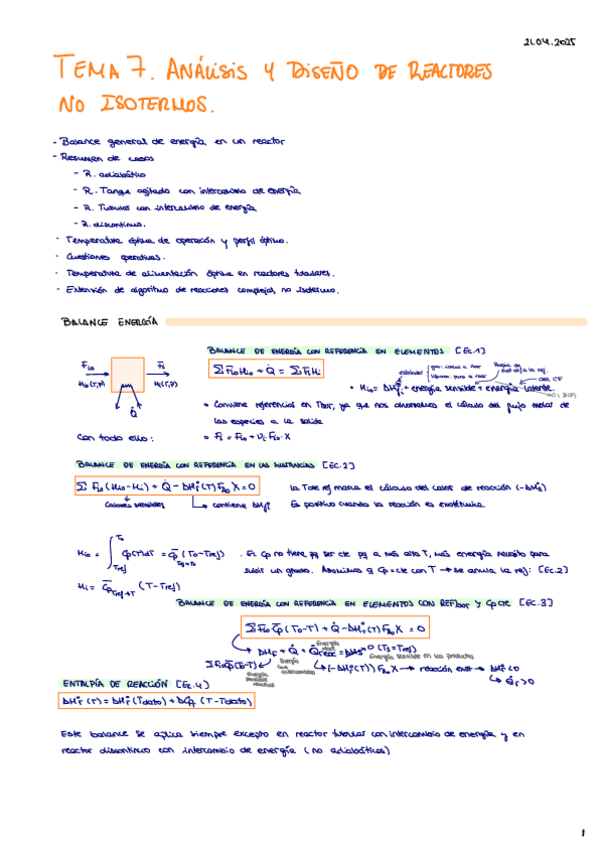 21.04.2025
TEMA 7. ANÁLISIS Y DISEÑO DE REACTORES
NO ISOTERMOS.
- Balance general de energía en un reactor
- Resumen de casos
- R. adiabático
- R. Tanque agitado con intercambio de energía
- R. Tubular con intercambio de energía
- R. discontinuo.
- Temperatura óptima de operación y perfil óptimo.
- Cuestiones operativas.
- Temperatura de alimentación óptima en reactores tubulares.
- Extensión de algoritmo de reacciones complejas, no isotermo.
BALANCE ENERGÍA
BALANCE DE ENERGÍA CON REFERENCIA EN ELEMENTOS [Ec.1]
ΣFi0Hi0 + Q̇ = ΣFiHi
Fi0 Fi
Hi0 (T,P) Hi(T,P)
Q̇
• Hi0 = ΔHfi + energía sensible + energía latente.
• Conviene referencias en Tbar, ya que nos ahorramos el cálculo del flujo molar de
las especies a la salida
Con todo ello: • Fi = Fi0 + νi FA0·X
BALANCE DE ENERGÍA CON REFERENCIA EN LAS SUSTANCIAS [EC.2]
ΣFi0 (Hi0-Hi) + Q̇ - ΔHr(T) FA0 X = 0
Calores sensibles → contiene ΔHf
La T de ref marca el cálculo del calor de reacción (-ΔHr)
Es positivo cuando la reacción es exotérmica.
Hi0 = ∫ Cp(T)dT = Cp (T0-Tref)
T0 Tref Tref→T0
. El Cp no tiene pq ser cte pq a más alta T, más energía necesito para
subir un grado. Asumimos q Cp = cte con T → se anula la ref: [EC.2]
Hi = Cp Tref→T (T-Tref)
BALANCE DE ENERGÍA CON REFERENCIA EN ELEMENTOS CON REF) bar Y Cp cte [EC.3]
ΣFi0 Cp (T0-T) + Q̇ - ΔHr(T) FA0 X = 0
Energía sensible en los productos
Energía intercambiada
Energía sensible reactivos
(-ΔHr(T)) FA0 X → reacción exot → ΔHr < 0
→ Q̇r > 0
ENTALPÍA DE REACCIÓN [EC.4]
ΔHr (T) = ΔHr (Tdato) + ΔCp (T - Tdato)
Este balance se aplica siempre excepto en reactor tubular con intercambio de energía y en
reactor discontinuo con intercambio de energía (no adiabáticos)
1